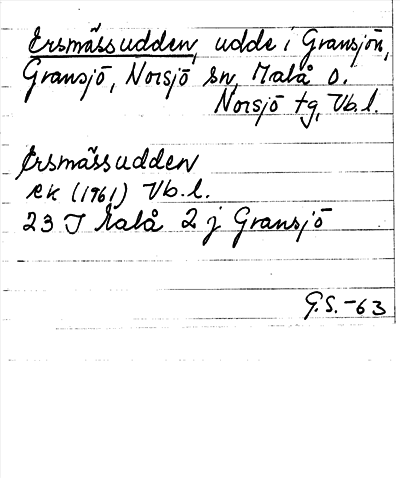 Ersmässudden, udde i Gransjön,
Gransjö, Norsjö sn, Malå o.
Norsjö tg, Vb.l.
Ersmässudden
ek (1961) Vb.l.
23 J Malå 2 j Gransjö
G.S. -63